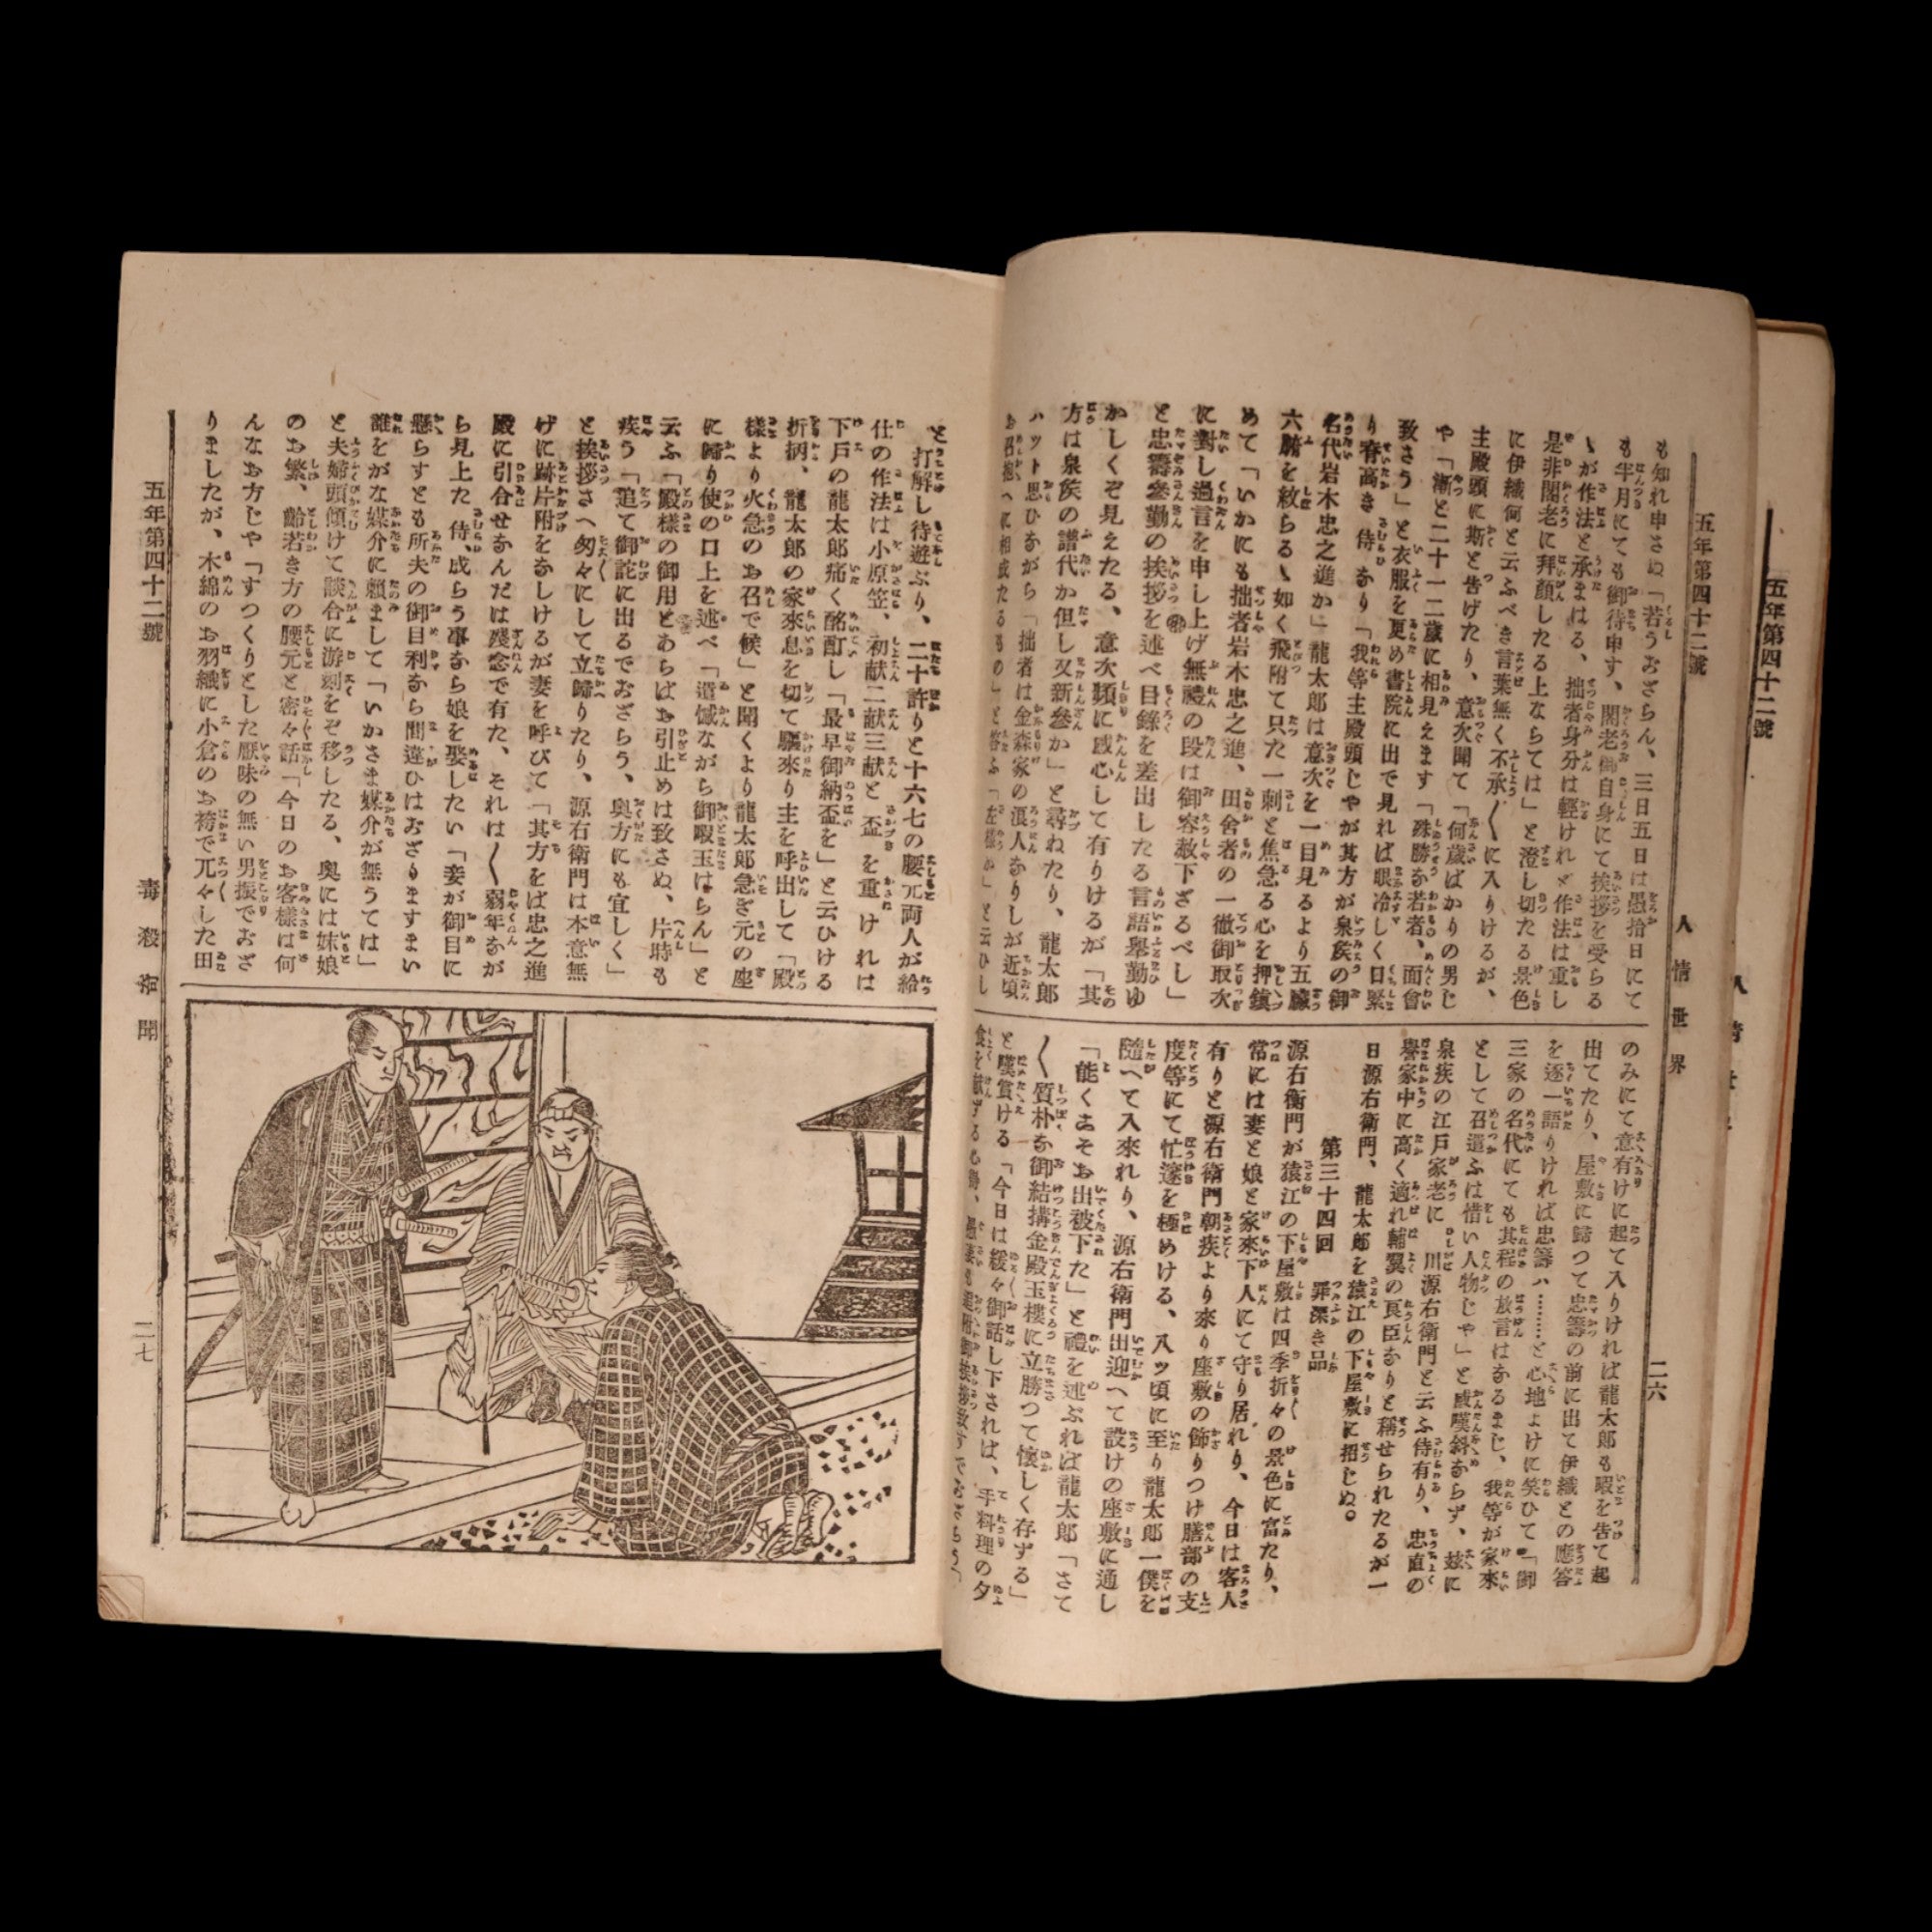 五年第四十二號
人情世界
二六
も知れ申さぬ「若うおざらん、三日五日は愚拾日にて
も半月にても御待申す、閣老御自身にて挨拶を受らる
ゝが作法と承まはる、拙者身分は輕けれど作法は重し
是非閣老に拜顏したる上ならでは」と澄し切たる景色
に伊織何と云ふべき言葉無く不承〱に入りけるが、
主殿頭に斯と告げたり、意次聞て「何歲ばかりの男じ
や「漸と二十一二歲に相見えます「殊勝な若者、面會
致さう」と衣服を更め書院に出で見れば眼冷しく口緊
り脊高き侍なり「我等主殿頭じやが其方が泉矦の御
名代岩木忠之進か」龍太郎は意次を一目見るより五臟
六腑を紋らるゝ如く飛附て只た一刺と焦急る心を押鎭
めて「いかにも拙者岩木忠之進、田舍者の一徹御取次
に對し過言を申し上げ無禮の段は御容赦下ざるべし」
と忠籌參勤の挨拶を述べ目錄を差出したる言語擧動ゆ
かしくぞ見えたる、意次頻に感心して有りけるが「其
方は泉矦の譜代か但し又新參か」と尋ねたり、龍太郎
ハット思ひながら「拙者は金森家の浪人なりしが近頃
お召抱へに相成たるもの」と答ふ「左樣か」と云ひし
のみにて意有けに起て入りければ龍太郎も暇を告て起
出てたり、屋敷に歸つて忠籌の前に出て伊織との應答
を逐一語りければ忠籌ハ………と心地よけに笑ひて「御
三家の名代にても其程の放言はなるまじ、我等が家來
として召遣ふは惜い人物じや」と感嘆斜ならず、玆に
泉矦の江戸家老に　川源右衛門と云ふ侍有り、忠直の
譽家中に高く適れ輔翼の良臣なりと稱せられたるが一
日源右衛門、龍太郎を猿江の下屋敷に招じぬ。
第三十四回　罪深き品
源右衛門が猿江の下屋敷は四季折々の景色に富たり、
常には妻と娘と家來下人にて守り居れり、今日は客人
有りと源右衛門朝疾より來り座敷の飾りつけ膳部の支
度等にて忙遽を極めける、八ッ頃に至り龍太郎一僕を
隨へて入來れり、源右衛門出迎へて設けの座敷に通し
「能くこそお出被下た」と禮を述ぶれば龍太郎「さて
〱質朴な御結搆金殿玉樓に立勝つて懷しく存ずる」
と嘆賞ける「今日は緩々御話し下されば、手料理の夕
と打解し待遊ぶり、二十許りと十六七の腰元兩人が給
仕の作法は小原笠、初献二献三献と盃を重けれは
下戸の龍太郎痛く酩酊し「最早御納盃を」と云ひける
折柄、龍太郎の家來息を切て驅來り主を呼出して「殿
樣より火急のお召で候」と聞くより龍太郎急ぎ元の座
に歸り使の口上を述べ「遺憾ながら御暇玉はらん」と
云ふ「殿樣の御用とあらばお引止めは致さぬ、片時も
疾う「追て御詫に出るでおざらう、奥方にも宜しく」
と挨拶さへ匆々にして立歸りたり、源右衛門は本意無
げに跡片附をなしけるが妻を呼びて「其方をば忠之進
殿に引合せなんだは殘念で有た、それは〱弱年なが
ら見上た侍、成らう事なら娘を娶したい「妾が御目に
懸らずとも所夫の御目利なら間違ひはおざりますまい
誰をがな媒介に賴まして「いかさま媒介が無うては」
と夫婦頭傾けて談合に游刻をぞ移したる、奥には妹娘
のお繁、齡若き方の腰元と密々話「今日のお客樣は何
んなお方じや「すつくりとした厭味の無い男振でおざ
りましたが、木綿のお羽織に小倉のお袴で兀々した田
五年第四十二號
毒殺奇聞
二七
五年第四十二號